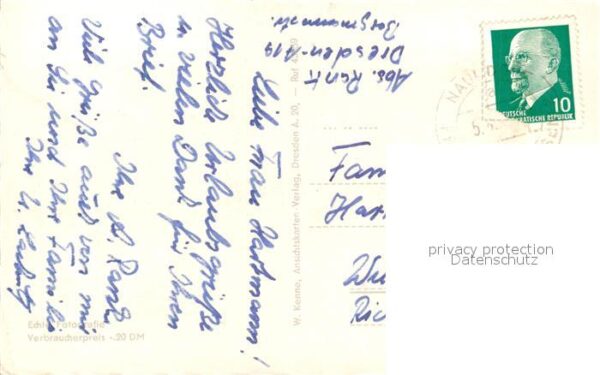 Abs. Rentz
Dresden-A19
Bergmannstr.
Liebe Frau Hartmann!
Herzliche Urlaubsgrüße
u. vielen Dank für Ihren
Brief.
Ihre
Viele Grüße auch von mir
an Sie und Ihre Familie
Ihre
Echte Fotografie
Verbraucherpreis -.20 DM
W. Kenne, Ansichtskarten Verlag, Dresden A. 20, – Ruf
10
DEUTSCHE
DEMOKRATISCHE REPUBLIK
NAU
Fam
Har
Wu
Ric
privacy protection
Datenschutz